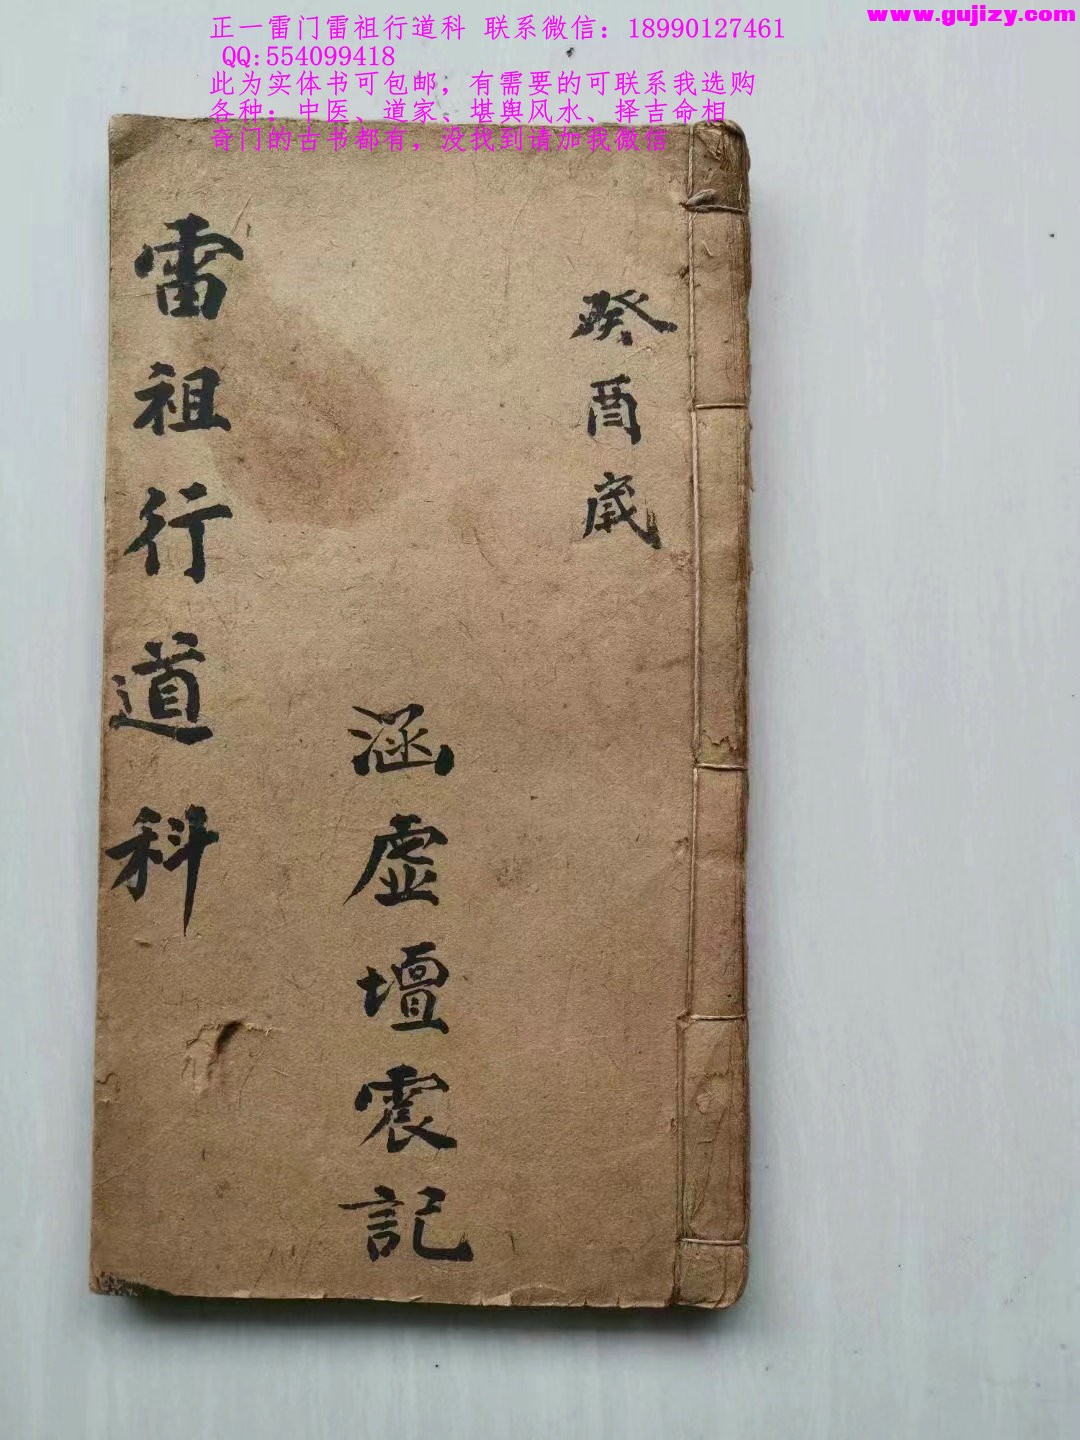 www.gujizy.com
正一雷门雷祖行道科 联系微信：18990127461
QQ:554099418
此为实体书可包邮，有需要的可联系我选购
各种：中医、道家、堪舆风水、择吉命相
奇门的古书都有，没找到请加我微信
癸酉歲
涵虛壇震記
雷祖行道科